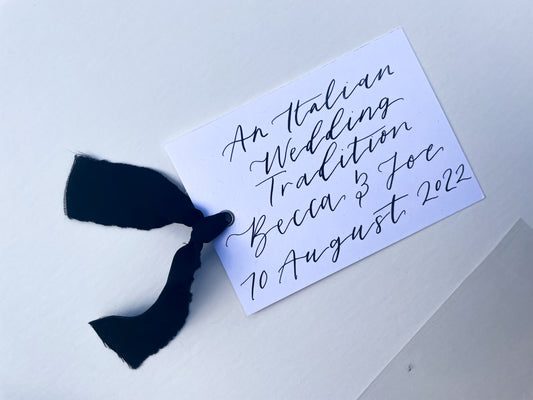 An Italian
Wedding
Tradition
Becca & Joe
10 August 2022